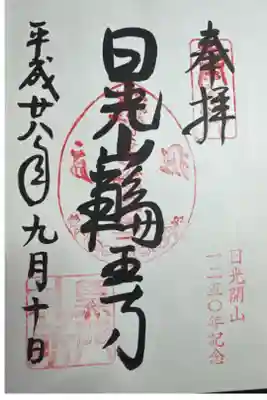 奉拝
日光開山
一二五〇年記念
日光山輪王寺
平成廿八年九月十日